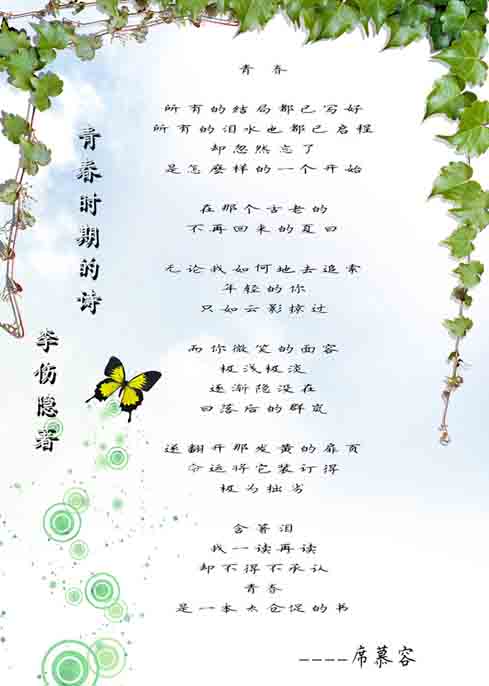 青春
所有的结局都已写好
所有的泪水也都已启程
却忽然忘了
是怎麽样的一个开始
在那个古老的
不再回来的夏日
无论我如何地去追索
年轻的你
只如云影掠过
而你微笑的面容
极浅极淡
逐渐隐没在
日落后的群岚
遂翻开那发黄的扉页
命运将它装订得
极为拙劣
含著泪
我一读再读
却不得不承认
青春
是一本太仓促的书
----席慕容
青春时期的诗
李伤隐者